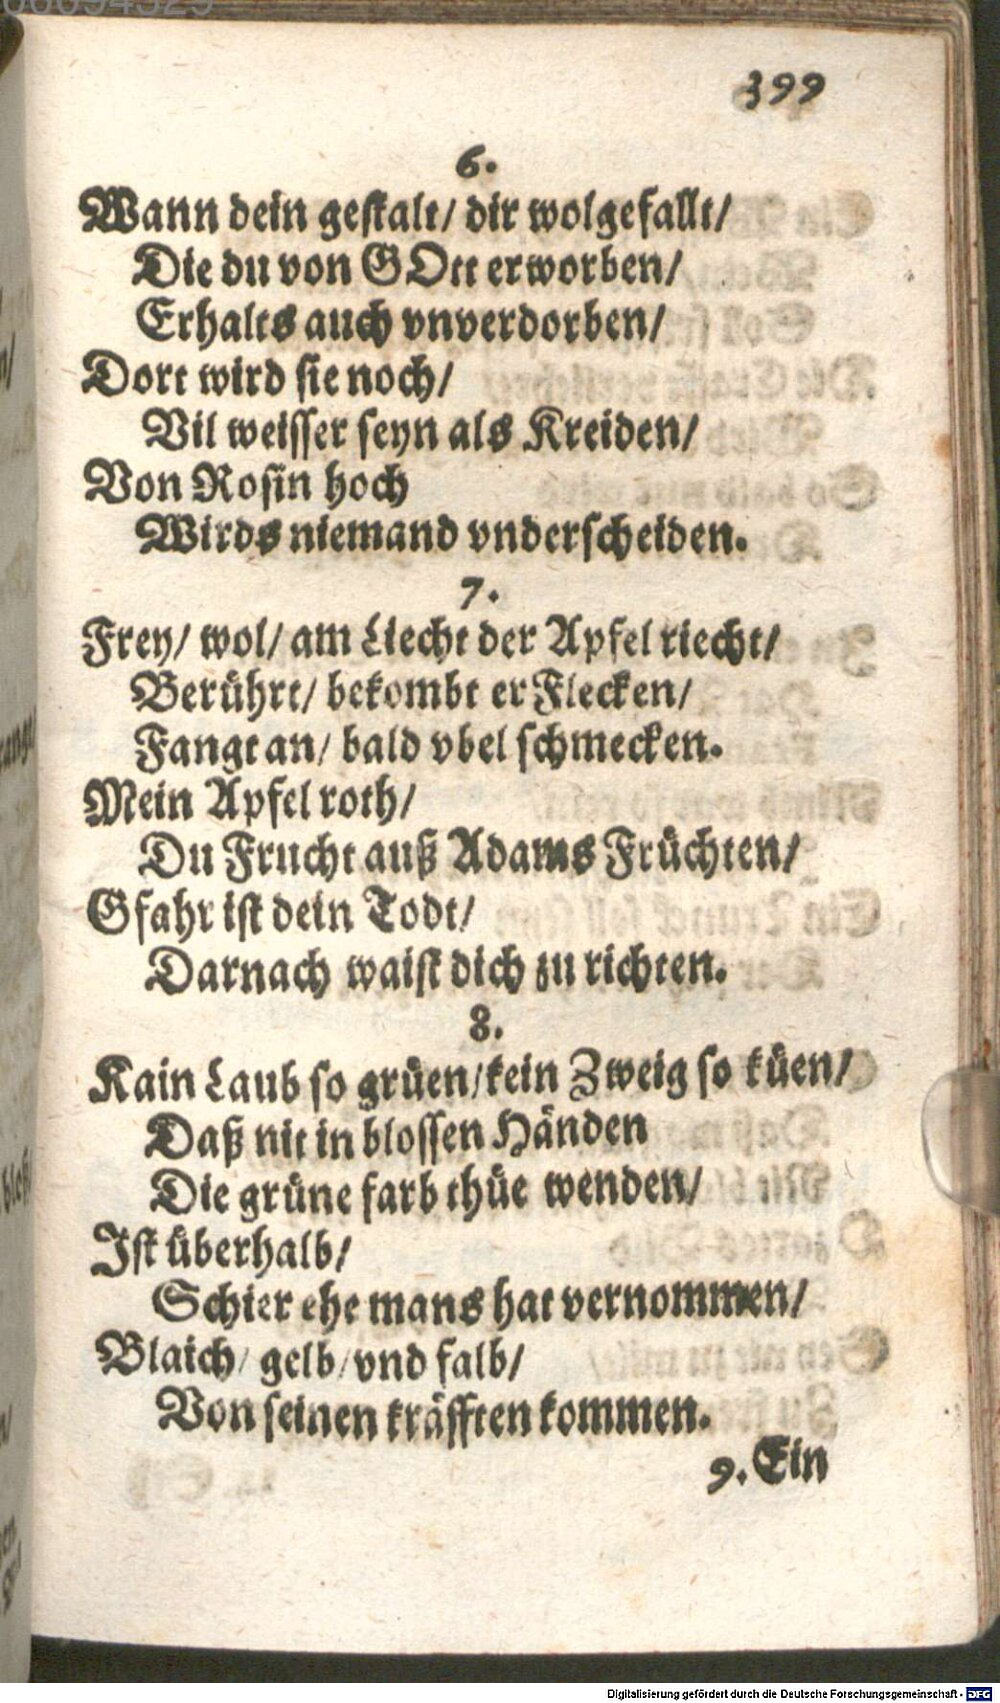 399
6.
Wann dein gestalt/ dir wolgefallt/
Die du von GOtt erworben/
Erhalts auch vnverdorben/
Dort wird sie noch/
Vil weisser seyn als Kreiden/
Von Rosin hoch
Wirds niemand vnderscheiden.
7.
Frey/ wol/ am Liecht der Apfel riecht/
Berührt/ bekombt er Flecken/
Fangt an/ bald vbel schmecken.
Mein Apfel roth/
Du Frucht auß Adams Früchten/
Gfahr ist dein Todt/
Darnach waist dich zu richten.
8.
Kain Laub so grüen/ kein Zweig so küen/
Daß nit in blossen Händen
Die grüne farb thüe wenden/
Ist überhalb/
Schier ehe mans hat vernommen/
Blaich/ gelb/ vnd falb/
Von seinen kräfften kommen.
9. Ein
Digitalisierung gefördert durch die Deutsche Forschungsgemeinschaft - DFG